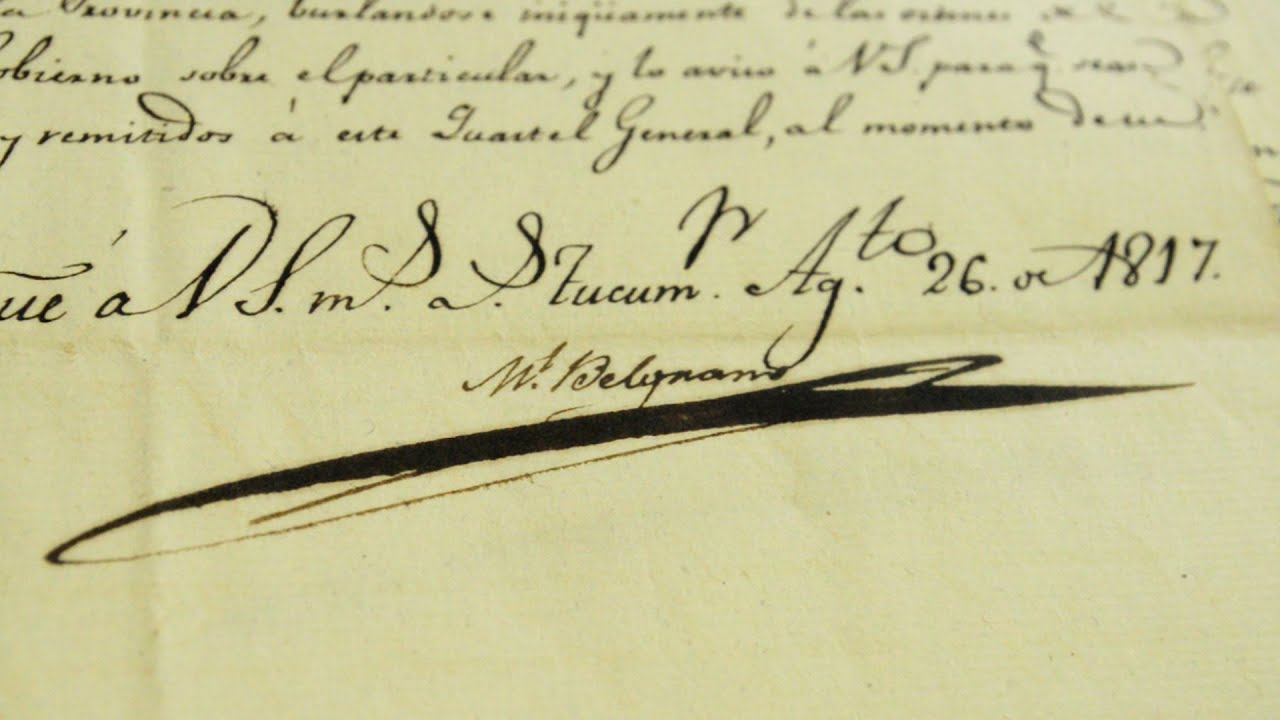 la Provincia, burlandose iniqüamente de las ordenes
obierno sobre el particular, y lo aviso à VS. paraq. sean
y remitidos à este Quartel General, al momento
ue á VS. m.s a.s Tucum.n Ag.to 26. de 1817.
M.l Belgrano